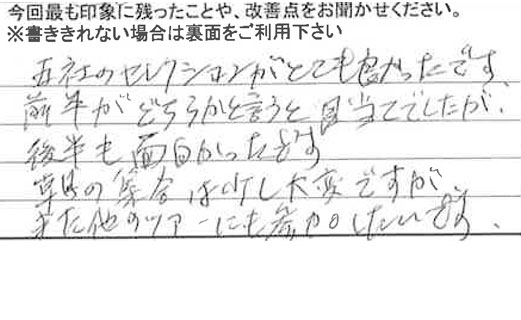 今回最も印象に残ったことや、改善点をお聞かせください。
※書ききれない場合は裏面をご利用下さい
五社のセレクションがとても良かったです
前半がどちらかと言うと目当てでしたが、
後半も面白かったです
早朝の集合は少し大変ですが、
また他のツアーにも参加したいです。